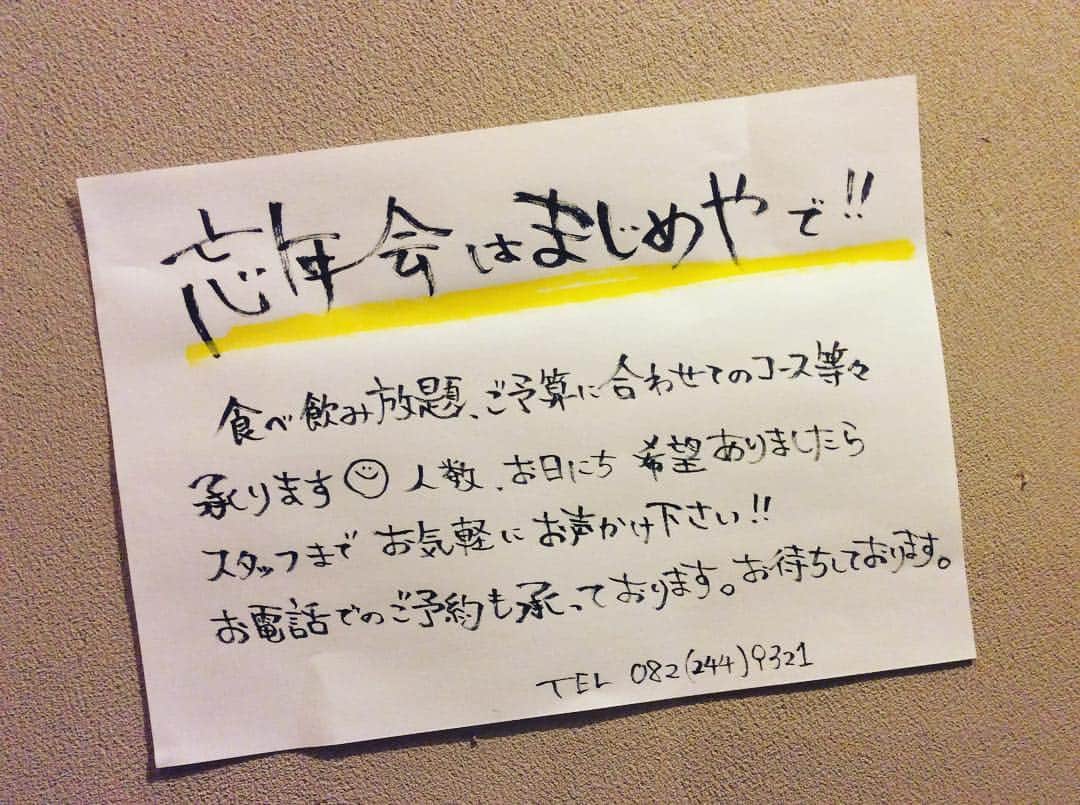 忘年会はまじめやで!!
食べ飲み放題、ご予算に合わせてのコース等々
承ります☺ 人数、お日にち 希望ありましたら
スタッフまで お気軽にお声かけ下さい!!
お電話でのご予約も承っております。お待ちしております。
TEL 082(244)9321